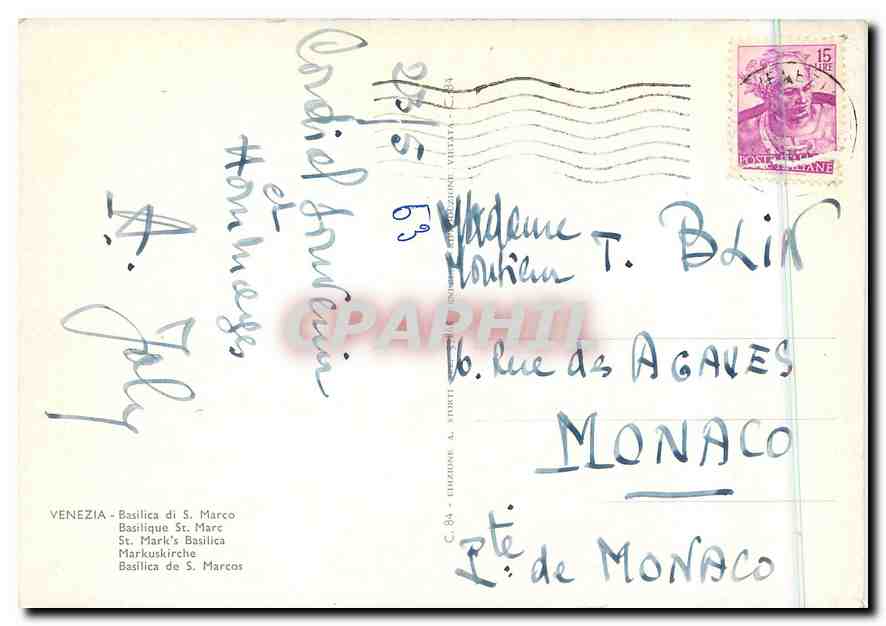 Cordial Souvenir
et
Hommages
A. Jaly
23/5
63
15
LIRE
POSTE ITALIANE
Madame
Monsieur T. BLIN
16. Rue des AGAVES
MONACO
Pté. de MONACO
CPAPHIL
VENEZIA - Basilica di S. Marco
Basilique St. Marc
St. Mark's Basilica
Markuskirche
Basilica de S. Marcos
C. 84 - EDIZIONE A. STORTI
RIPRODUZIONE VIETATA - C. 84